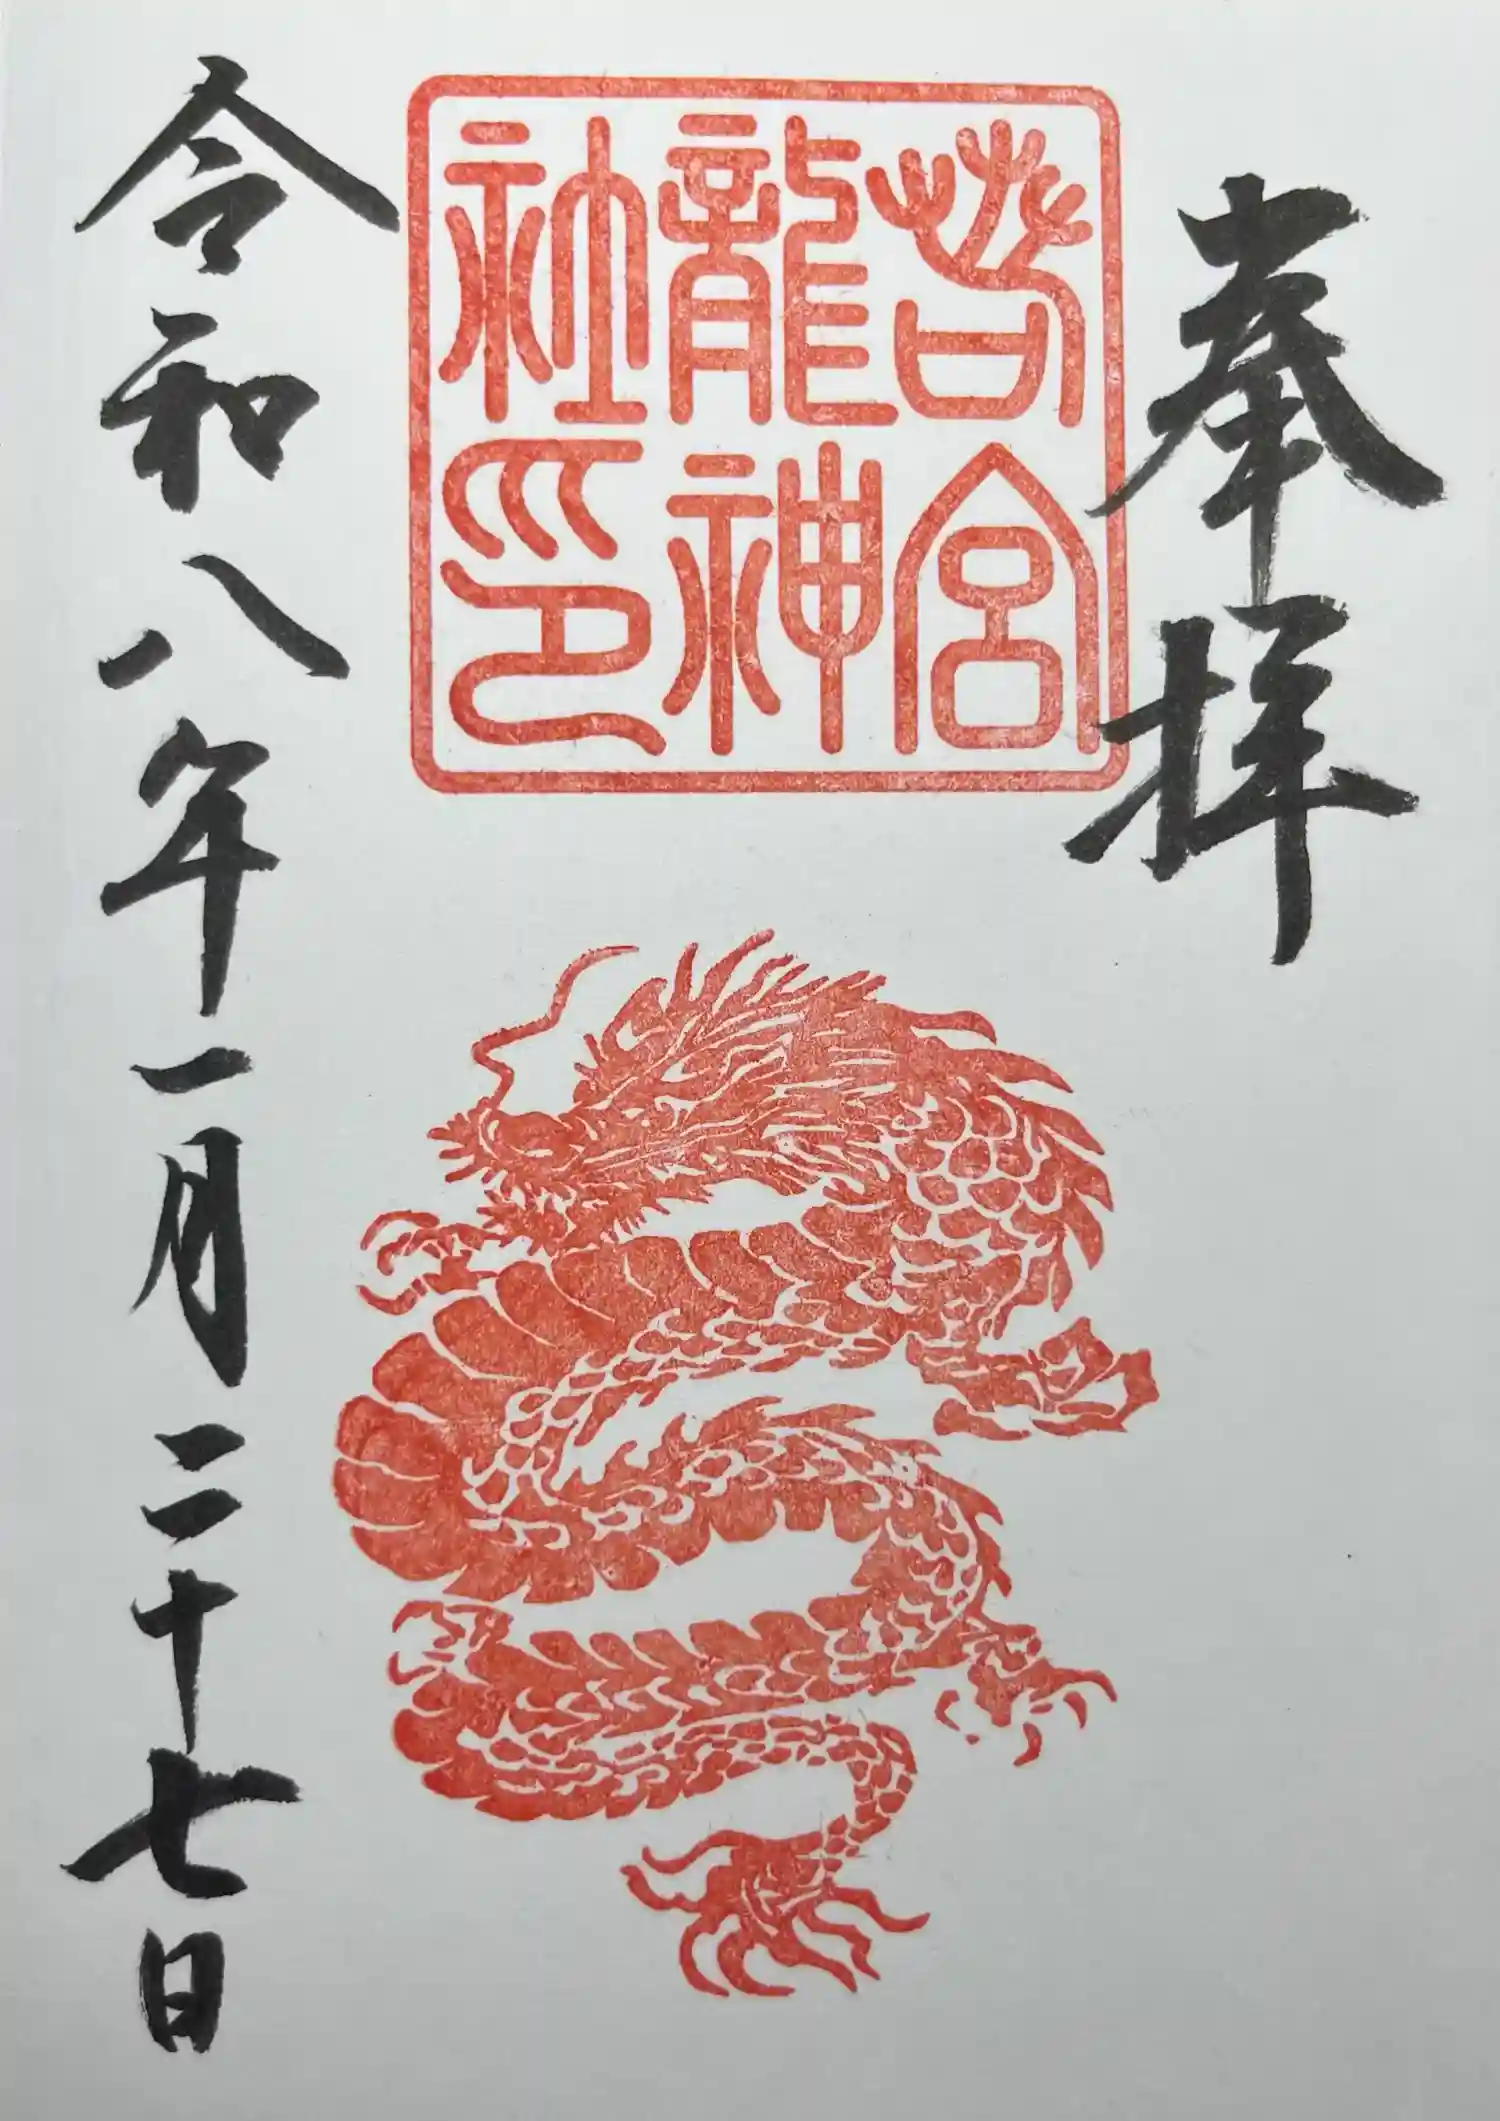 奉拝
若宮
龍神
社印
令和八年一月二十七日